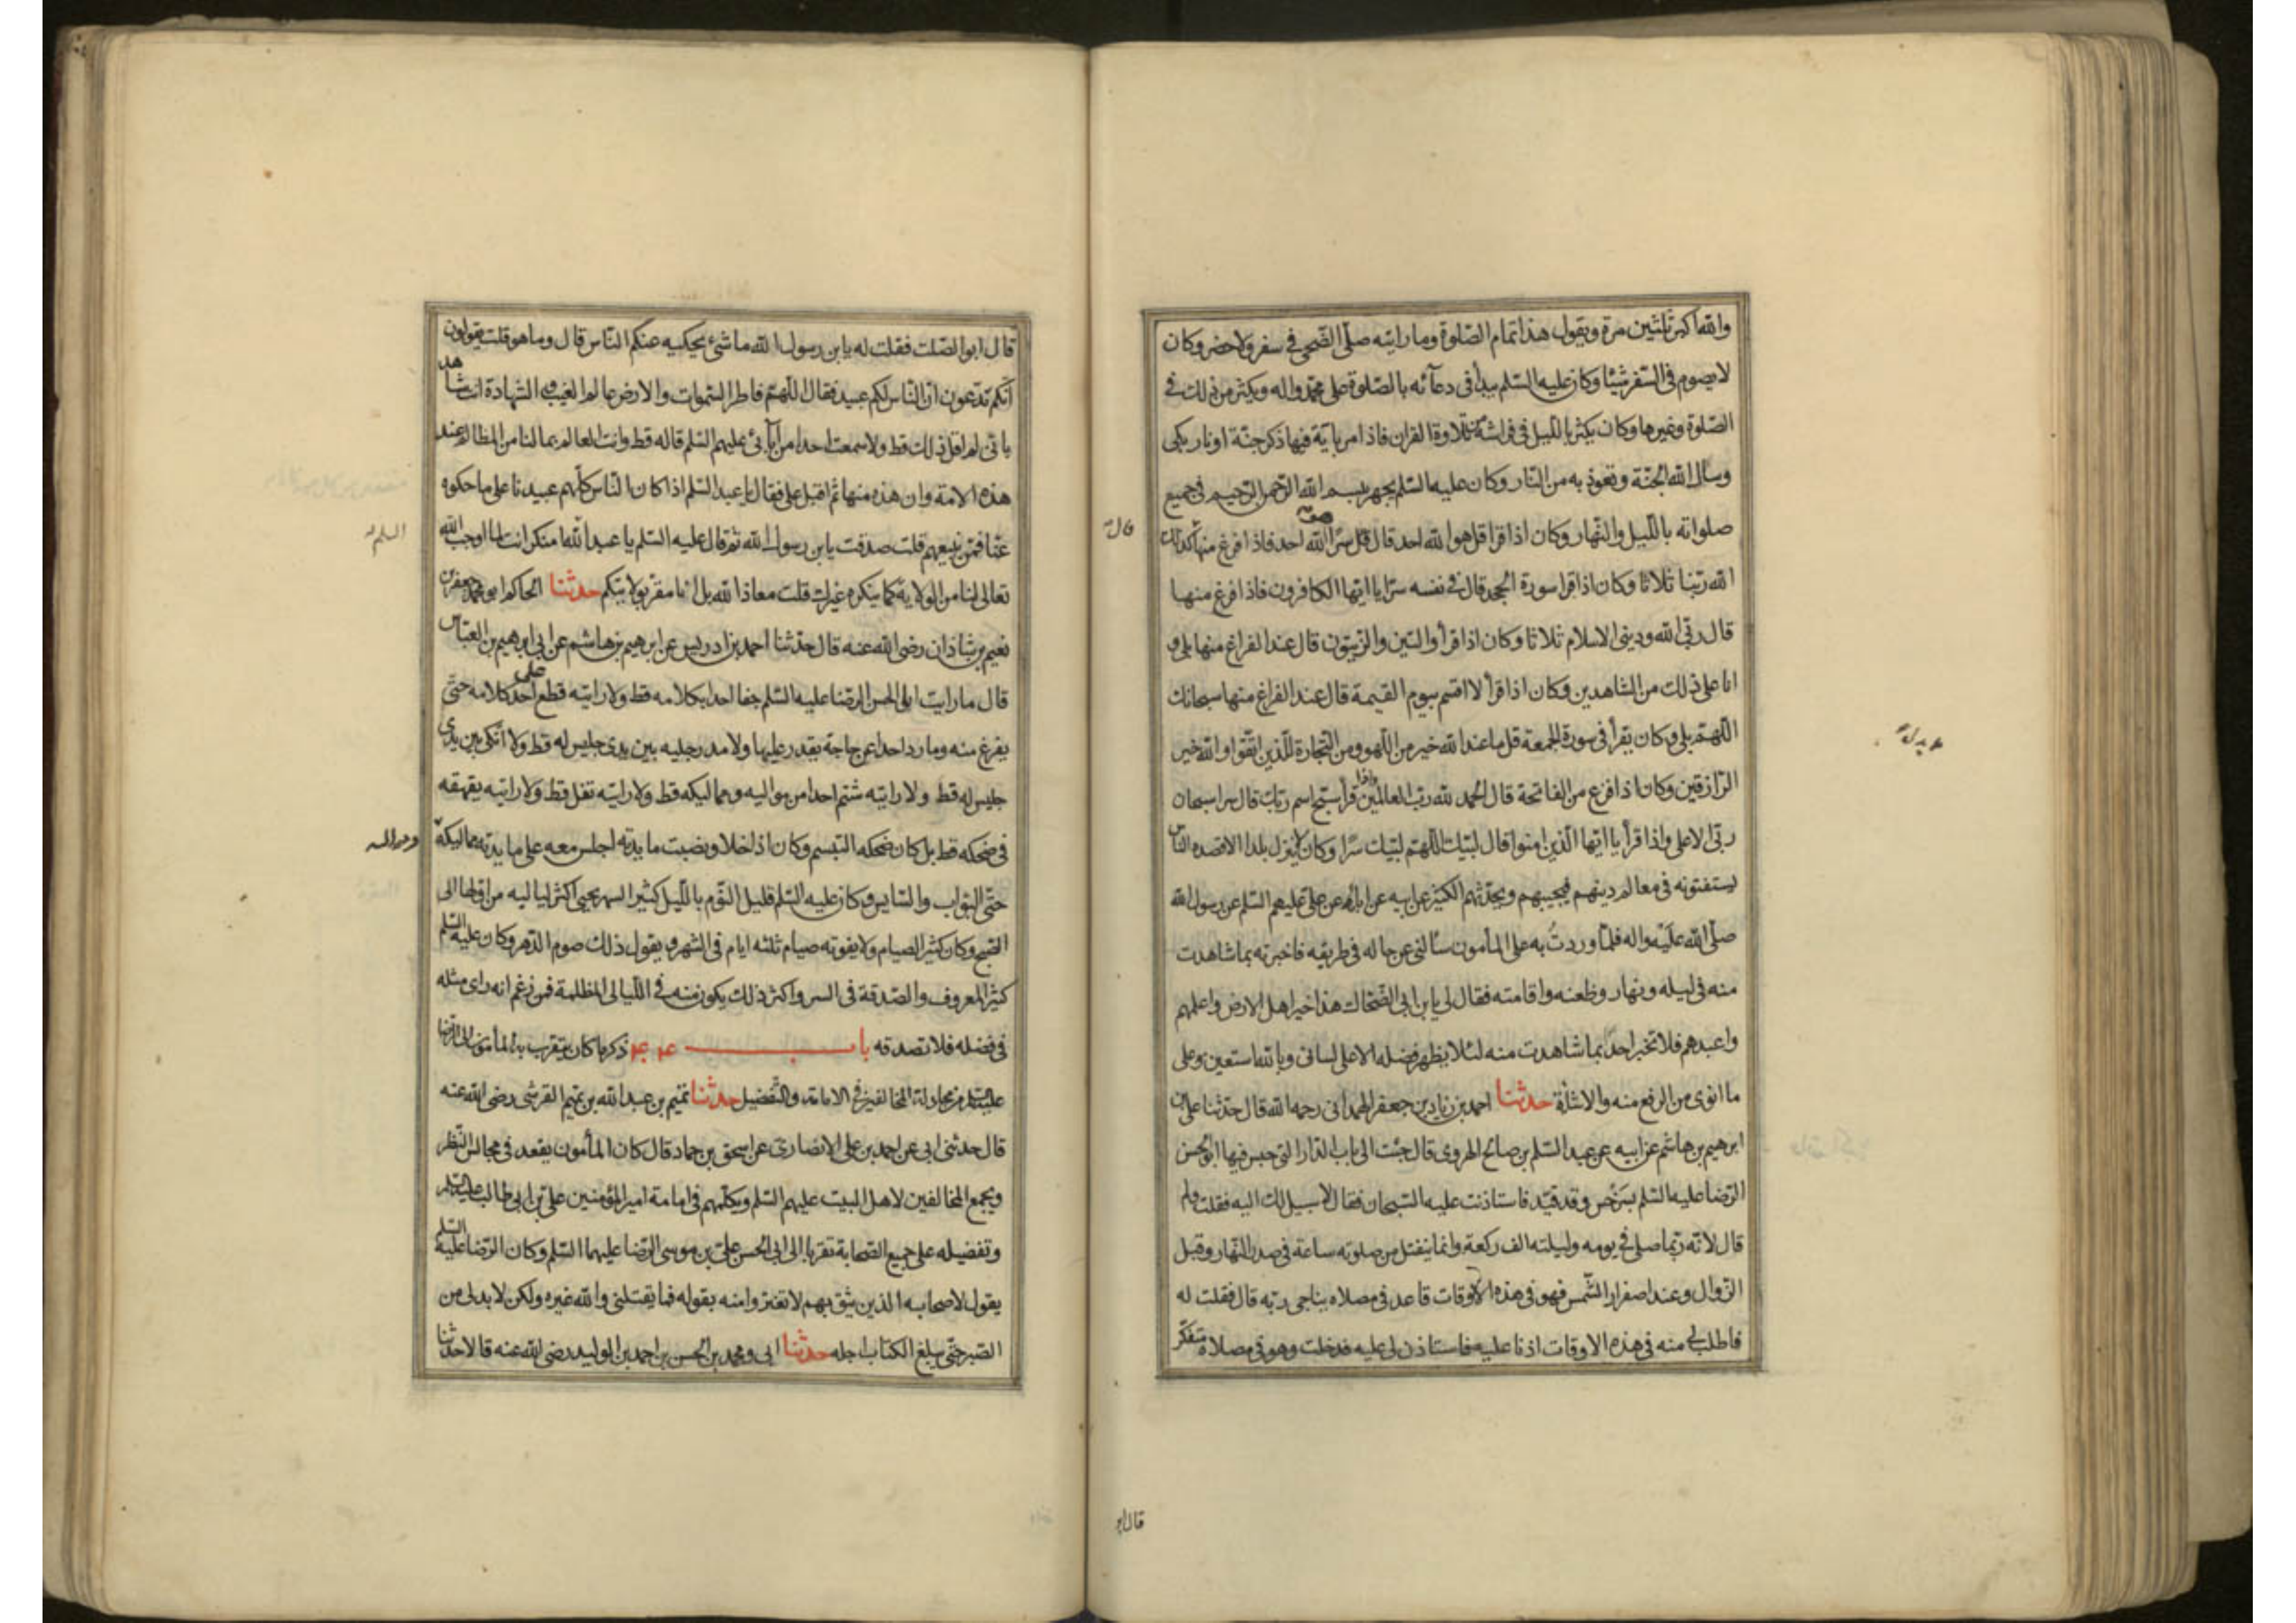 والله اكبر ثلثين مرة ويقول هذا تمام الصلوة وما رايته صلّى الضّحى فى سفر ولا حضر وكان
لا يصوم فى السّفر شيئا وكان عليه السّلم يبدأ فى دعآئه بالصّلوة على محمّد واله ويكثر من ذلك فى
الصّلوة وغيرها وكان يكثر بالليل فى فراشه من تلاوة القران فاذا مر بآية فيها ذكر جنّة او نار بكى
وسأل الله الجنّة وتعوذ به من النّار وكان عليه السّلم يجهر ببسم الله الرّحمن الرّحيم فى جميع
صلواته باللّيل والنّهار وكان اذا قرا قل هو الله احد قال سرّا الله احد فاذا فرغ منها كذلك
الله ربّنا ثلاثا وكان اذا قرا سورة الجحد قال فى نفسه سرّا يا ايّها الكافرون فاذا فرغ منها
قال ربّى الله ودينى الاسلام ثلاثا وكان اذا قرأ والتين والزّيتون قال عند الفراغ منها بلى و
انا على ذلك من الشاهدين وكان اذا قرأ لا اقسم بيوم القيمة قال عند الفراغ منها سبحانك
اللّهمّ بلى وكان يقرأ فى سورة الجمعة قل ما عند الله خير من اللّهو ومن التّجارة للّذين اتّقوا والله خير
الرّازقين وكان اذا فرغ من الفاتحة قال الحمد لله ربّ العالمين واذا قرأ سبّح اسم ربّك قال سرا سبحان
ربّى الاعلى واذا قرأ يا ايّها الّذين امنوا قال لبّيك اللّهمّ لبّيك سرّا وكان لا ينزل بلدا الا قصده النّاس
يستفتونه فى معالم دينهم فيجيبهم ويحدّثهم الكثير عن ابيه عن ابائه عن علىّ عليهم السّلم عن رسول الله
صلّى الله عليه واله فلمّا وردتُ به على المأمون سألنى عن حاله فى طريقه فاخبرته بما شاهدت
منه فى ليله ونهار وظعنه واقامته فقال لى يا بن ابى الضّحّاك هذا خير اهل الارض واعلمهم
واعبدهم فلا تخبر احدًا بما شاهدت منه لئلا يظهر فضله الا على لسانى وبالله استعين وعلى
ما انوى من الرفع منه والاشاة حدثنا احمد بن زياد بن جعفر الهمدانى رحمه الله قال حدّثنا على بن
ابرهيم بن هاشم عن ابيه عن عبد السّلم بن صالح الهروى قال جئت الى باب الدّار التى حبس فيها ابو الحسن
الرّضا عليه السّلم بسرخس وقد قيّد فاستاذنت عليه السّجان فقال لا سبيل لك اليه فقلت ولم
قال لانّه ربّما صلى فى يومه وليلته الف ركعة وانما ينفتل من صلوته ساعة فى صدر النّهار وقبل
الزّوال وعند اصفرار الشّمس فهو فى هذه الاوقات قاعد فى مصلاه يناجى ربّه قال فقلت له
فاطلب لى منه فى هذه الاوقات اذنا عليه فاستاذن لى عليه فدخلت وهو فى مصلاه متفكّر
قال
قال ابو
قال ابو الصّلت فقلت له يا بن رسول الله ما شىء يحكيه عنكم النّاس قال وما هو قلت يقولون
انّكم تدّعون انّ النّاس لكم عبيد فقال اللّهمّ فاطر السّموات والارض عالم الغيب والشّهادة انت شاهد
بانّى لم اقل ذلك قط ولا سمعت احدا من آبائى عليهم السّلم قاله قط وانت العالم بما لنا من المظالم عند
هذه الامة وان هذه منها ثم اقبل علىّ فقال يا عبد السّلم اذا كان النّاس كلّهم عبيدنا على ما حكوه
عنّا فممّن نبيعهم قلت صدقت يا بن رسول الله ثم قال عليه السّلم يا عبد الله امنكر انت لما اوجب الله
تعالى لنا من الولاية كما ينكره غيرك قلت معاذ الله بل انا مقرّ بولايتكم حدثنا الحاكم ابو محمد جعفر بن
نعيم بن شاذان رضى الله عنه قال حدّثنا احمد بن ادريس عن ابرهيم بن هاشم عن ابى ابرهيم بن العبّاس
قال ما رايت ابى الحسن الرضا عليه السّلم جفا احدا بكلامه قط ولا رايته قطع على احد كلامه حتّى
يفرغ منه وما رد احدا عن حاجة يقدر عليها ولا مد رجليه بين يدى جليس له قط ولا اتّكى بين يدى
جليس له قط ولا رايته شتم احدا من مواليه ومماليكه قط ولا رايته تفل قط ولا رايته يقهقه
فى ضحكه قط بل كان ضحكه التبسم وكان اذا خلا ونصبت مايدته اجلس معه على مايدته مماليكه
حتّى البوّاب والسّايس وكان عليه السّلم قليل النّوم باللّيل كثير السهر يحيى اكثر لياليه من اوّلها الى
الصّبح وكان كثير الصيام ولا يفوته صيام ثلثه ايام فى الشهر ويقول ذلك صوم الدّهر وكان عليه السّلم
كثير المعروف والصّدقة فى السر واكثر ذلك يكون منه فى اللّيالى المظلمة فمن زعم انه راى مثله
فى فضله فلا تصدقه باب ذكر ما كان يتقرب به المأمون الى الرّضا
عليه السّلم من مجادلة المخالفين فى الامامة والتّفضيل حدثنا تميم بن عبد الله بن تميم القرشى رضى الله عنه
قال حدثنى ابى عن احمد بن على الانصارى عن اسحق بن حماد قال كان المأمون يقعد فى مجالس النّظر
ويجمع المخالفين لاهل البيت عليهم السّلم ويكلّمهم فى امامة امير المؤمنين علىّ بن ابى طالب عليه السّلم
وتفضيله على جميع الصّحابة تقرّبا الى ابى الحسن علىّ بن موسى الرّضا عليهما السّلم وكان الرّضا عليه السّلم
يقول لاصحابه الذين يثق بهم لا تغترّوا منه بقوله فما يقتلنى والله غيره ولكن لا بد لى من
الصّبر حتّى يبلغ الكتاب اجله حدثنا ابى ومحمد بن الحسن بن احمد بن الوليد رضى الله عنه قالا حدّثنا
السلم